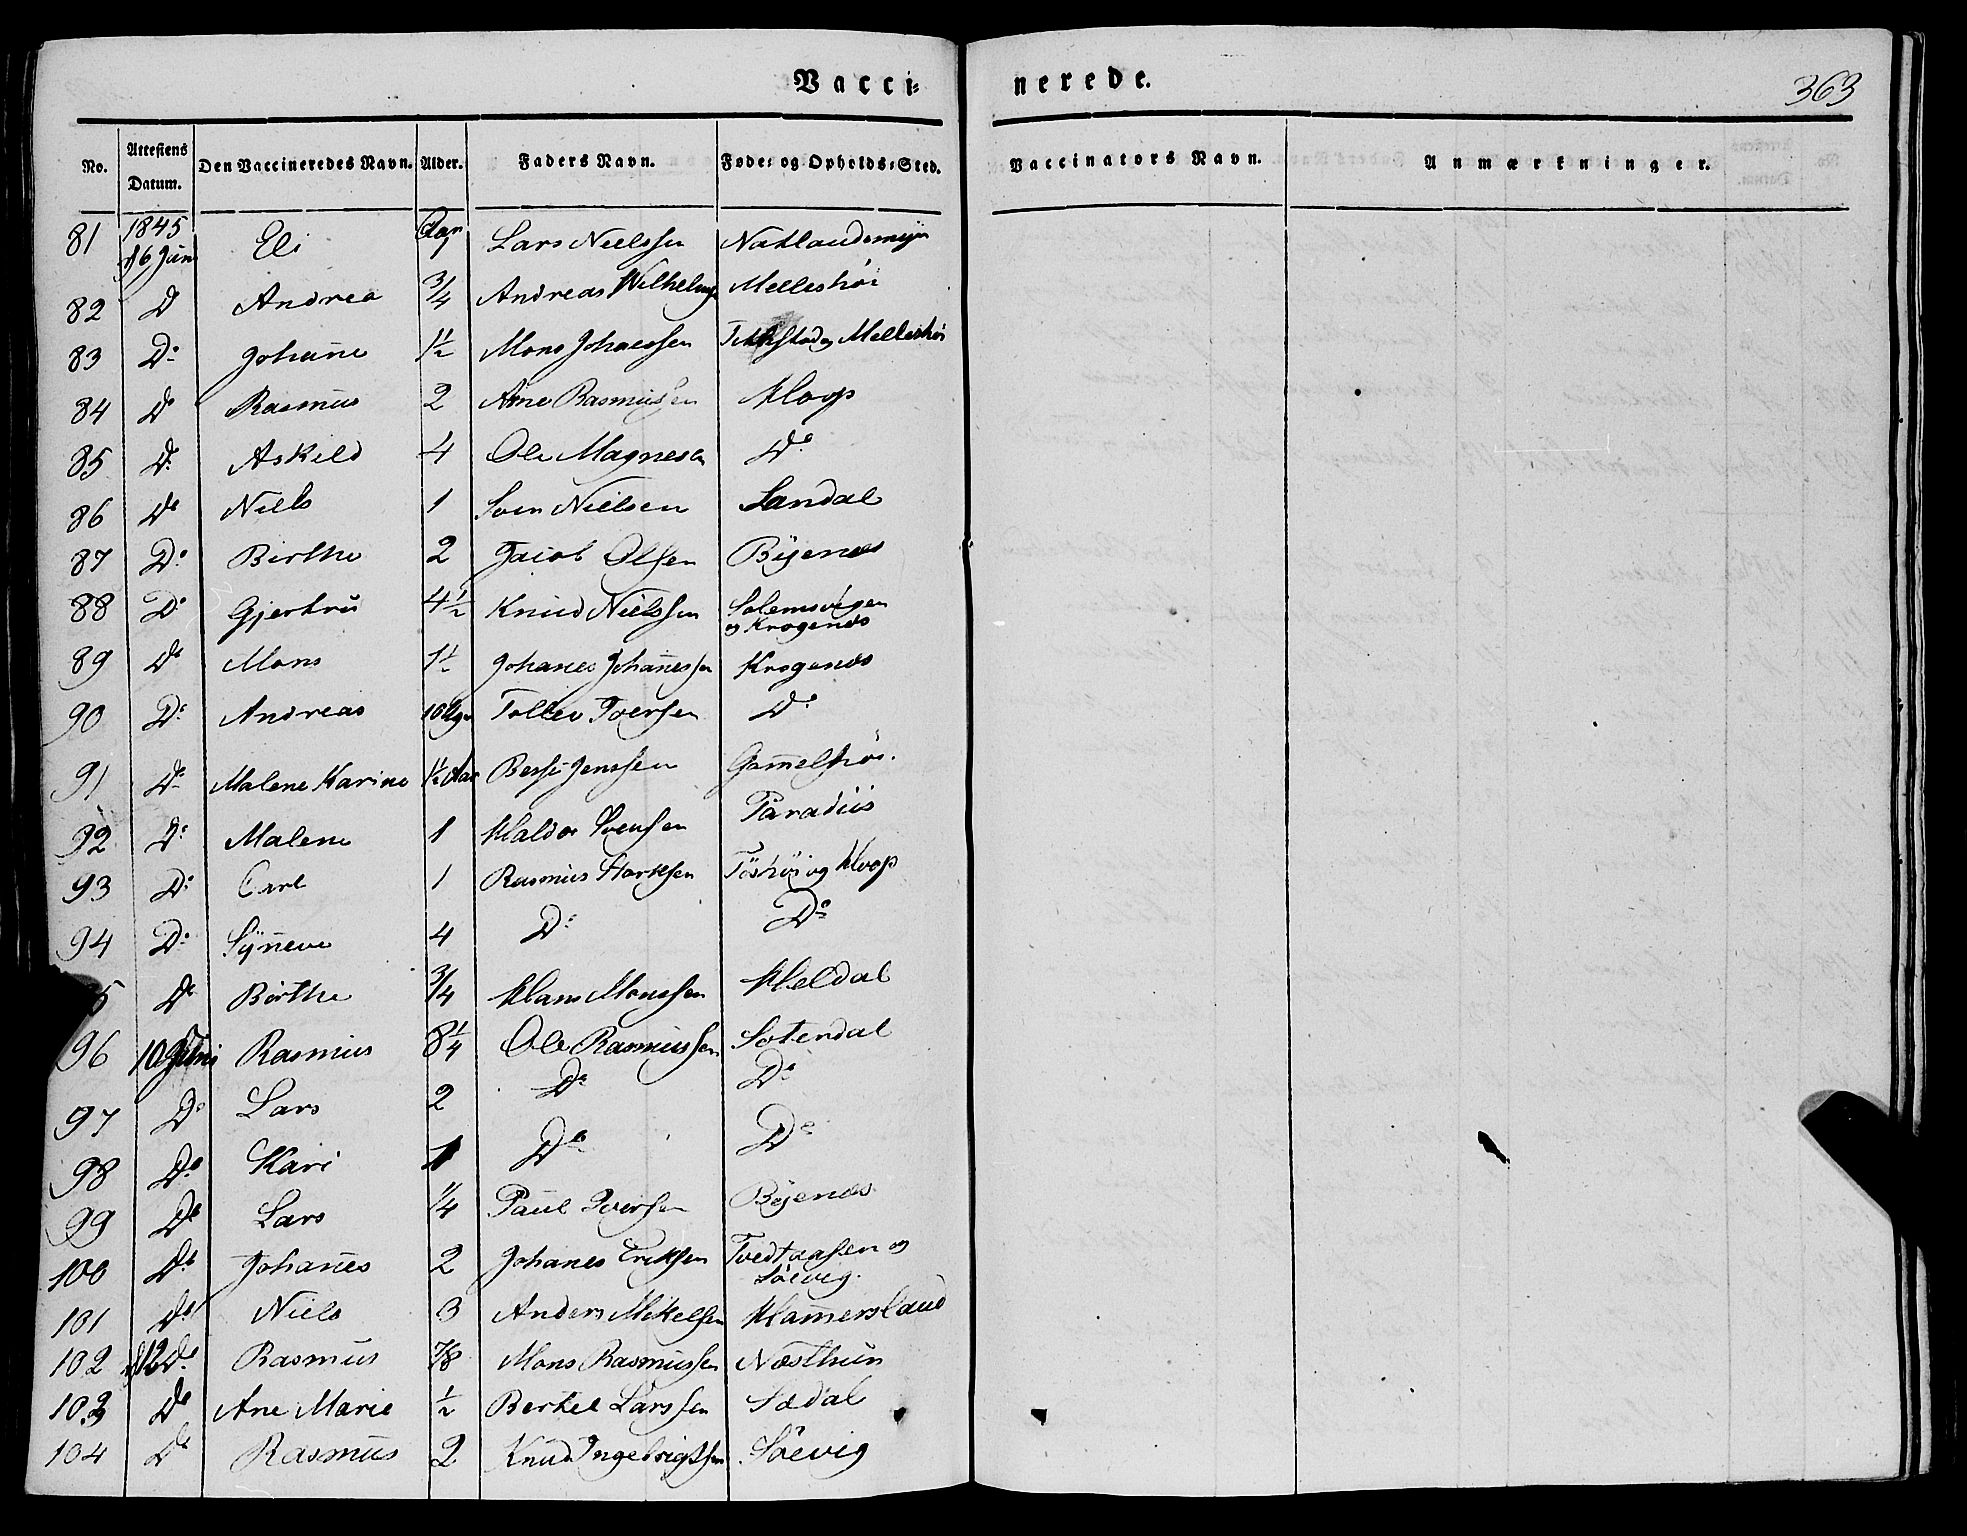 Vacci=
nerede.
363
No. Attestens Datum. Den Vaccineredes Navn. Alder. Faders Navn. Føde- og Opholds-Sted. Vaccinators Navn. Anmærkninger.
1845 Aar
81 16 Juni Eli 1 Lars Nielssen
82 D Andrea 3/4 Andreas Melleshöi
83 Do Johañe 1½ Mons Johanssen Melleshöi
84 Do Rasmus 2 Arne Rasmussen Hop
85 Do Askild 4 Ole Magnesen Do
86 Do Niels 1 Sven Nielsen Sandal
87 Do Birthe 2 Jacob Olssen Bÿenes
88 Do Gjertru 4½ Knud Nielssen Solemsvigen
og Krogenes
89 Do Mons 1½ Johanes Johañessen Krogenes
90 Do Andreas 10 Ugr Tollev Iversen Do
91 Do Malene Karine 1½ Aar Jenssen
92 Do Malene 1 Haldor Svensen Paradiis
93 Do Carl 1 Rasmus og Hop
94 Do Sÿneve 4 Do Do
5 Do Birthe 3/4 Hans Monssen Heldal
96 10 Juni Rasmus 8¼ Ole Rasmussen Soterdal
97 Do Lars 2 Do Do
98 Do Kari 1 Do Do
99 Do Lars ¼ Paul Iversen Bÿenes
100 Do Johañes 2 Johanes Eriksen Tvedtaasen og
Söevig.
101 Do Niels 3 Anders Mikelsen Hamersland
102 d 12 Do Rasmus 7/8 Mons Rasmussen Næsthun
103 Do Ane Marie ½ Bertel Larssen Sædal
104 Do Rasmus 2 Knud Ingebrigtsen Söevig